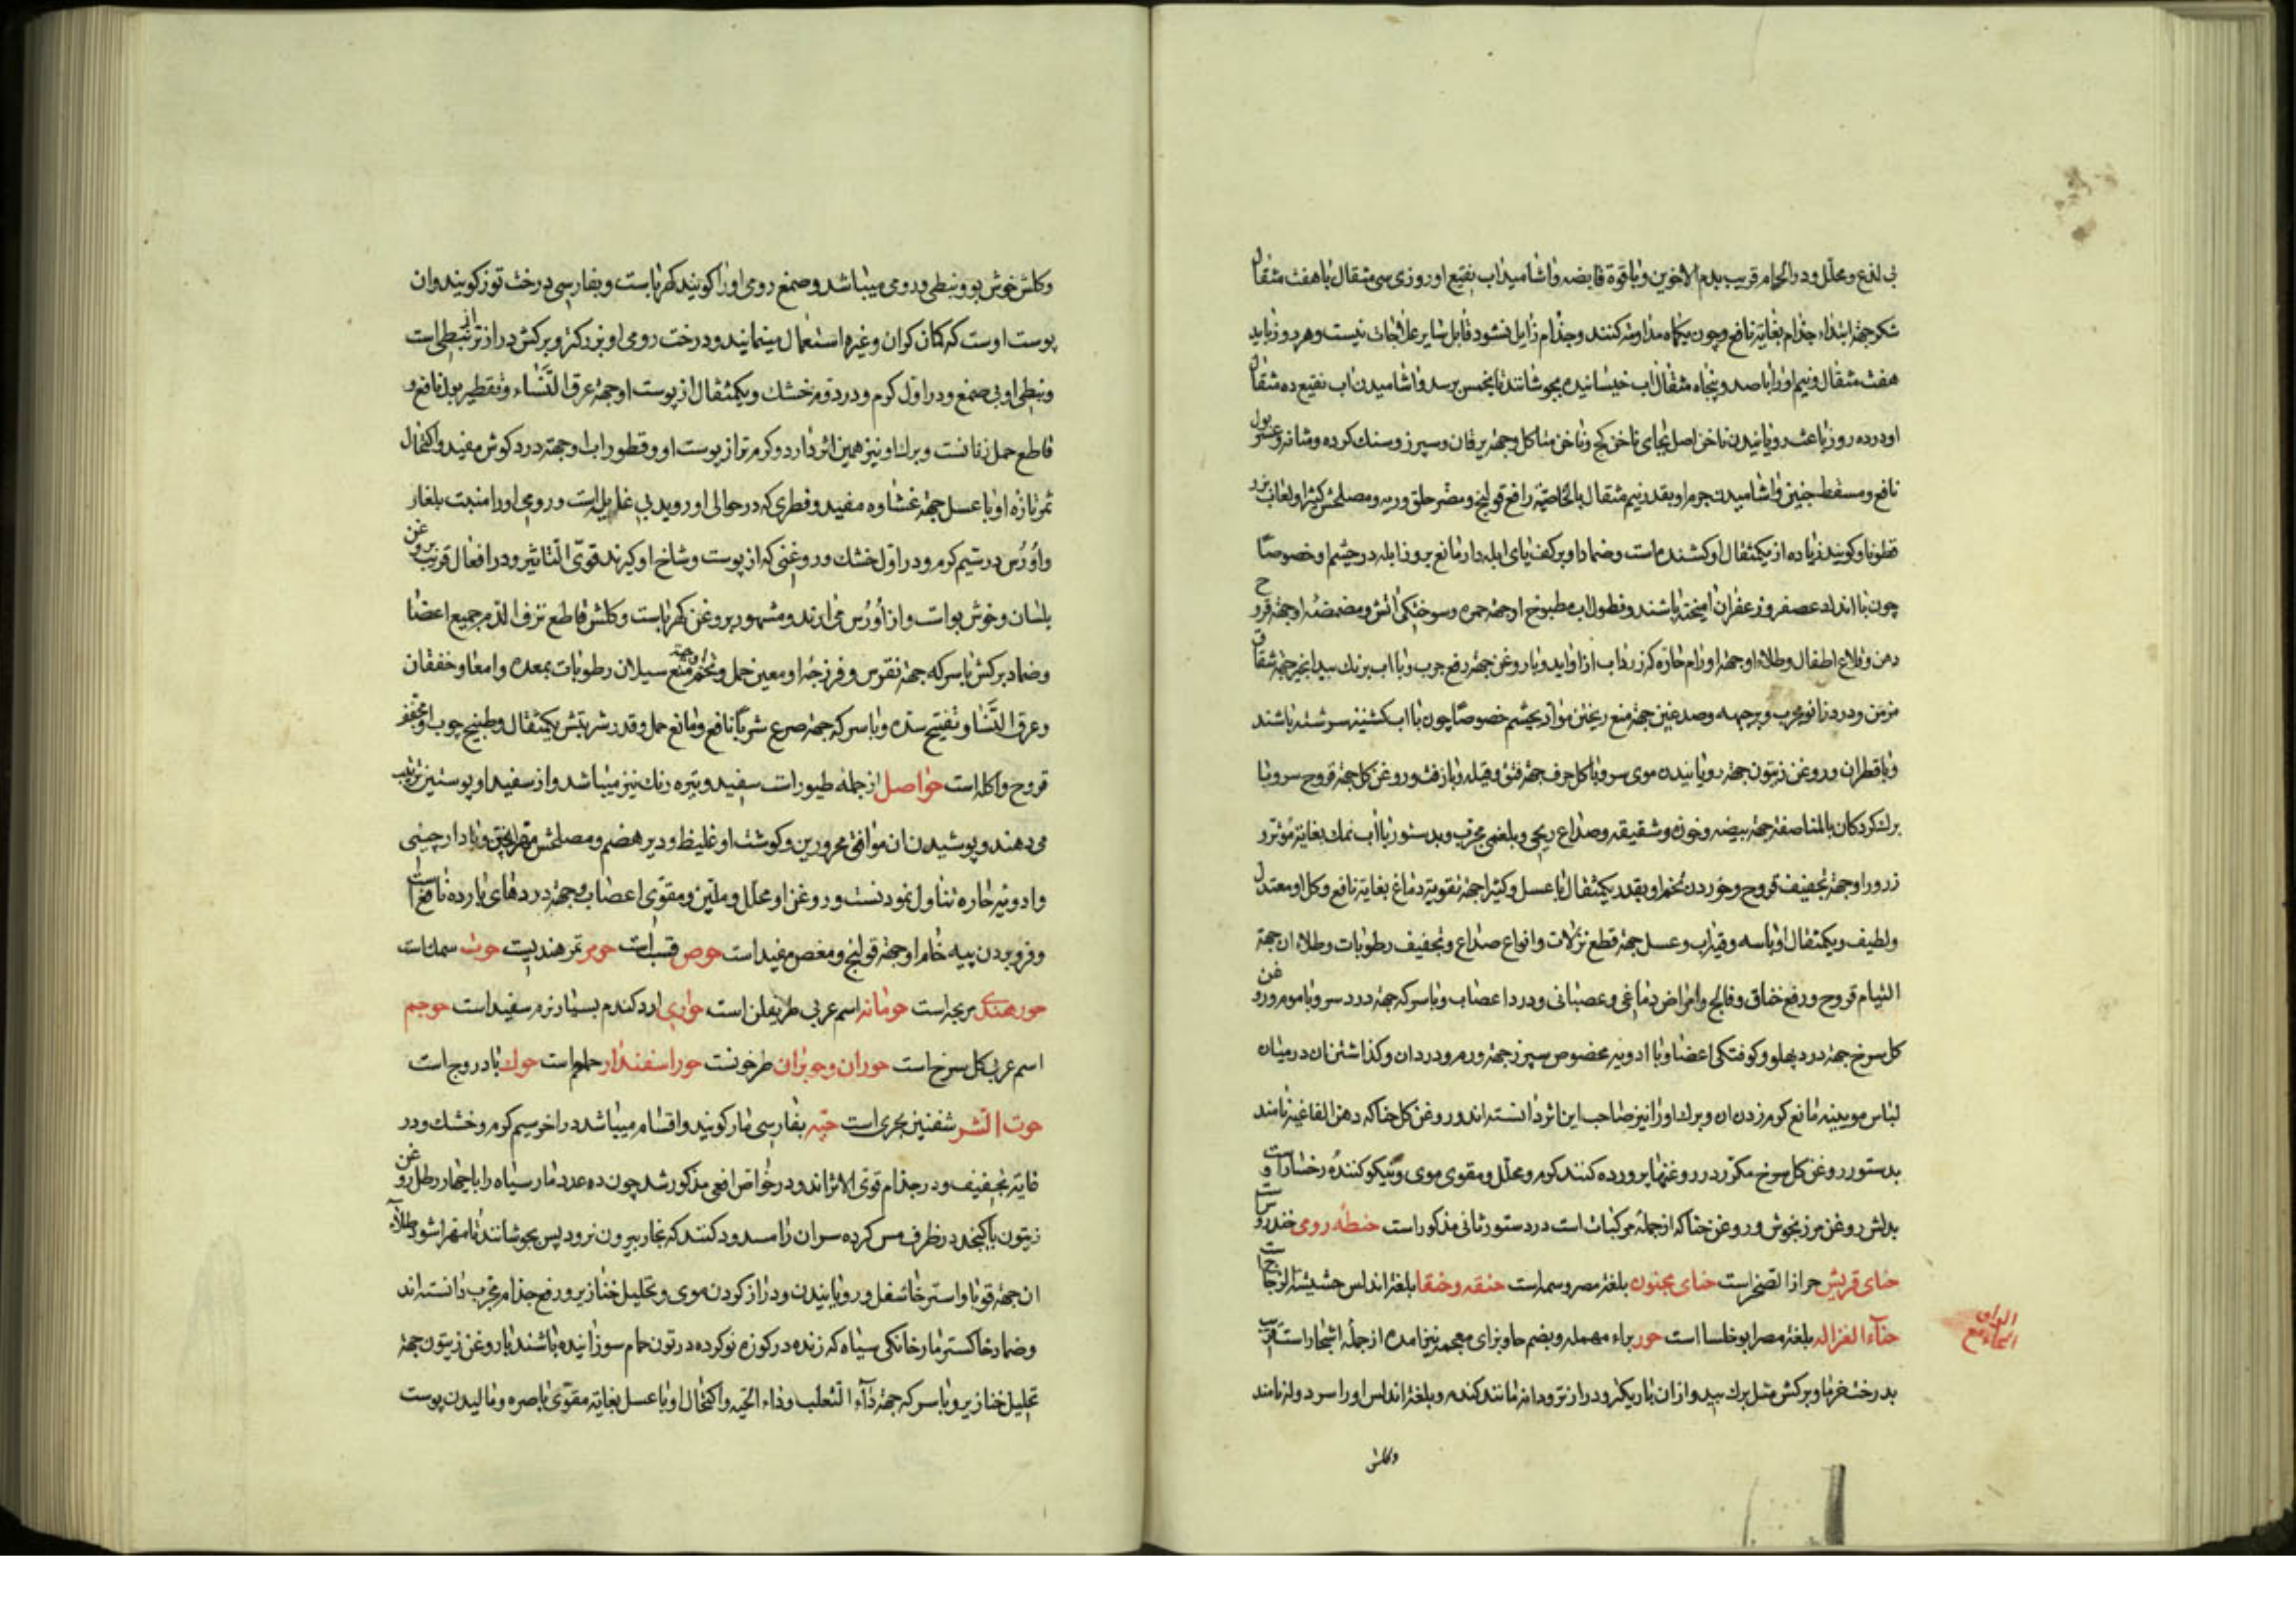 بی لذع و محلل و در الحام قریب بدم الاخوین و با قوة قابضه و اشامیدن اب نقیع او روزی سی مثقال با هفت مثقال
شکر جهة ابتداء جذام بغایة نافع و چون یکماه مداومة کنند و جذام زایل نشود قابل سایر علاجات نیست و هر روز باید
هفت مثقال و نیم اورا با صد و پنجاه مثقال اب خیسانیده بجوشانند تا بخمس برسد و اشامیدن اب نقیع ده مثقال
او در ده روز باعث رویانیدن ناخن اصل بجای ناخن کج و ناخن متاکل و جهة یرقان و سپرز و سنک کرده و مثانه و عسر بول
نافع و مسقط جنین و اشامیدن جرم او بقدر نیم مثقال بالخاصیة رافع قولنج و مضر حلق و ریه و مصلحش کتیرا و لعاب بزر
قطونا و کویند زیاده از یکمثقال او کشنده است و ضماد او بر کف پای ابله دار مانع بروز ابله در چشم او خصوصا
چون با اندک عصفر و زعفران امیخته باشند و نطول اب مطبوخ او جهة حمره و سوختکی اتش و مضمضه او جهة قروح
دهن و قلاع اطفال و طلاء او جهة اورام حاره که زرداب ازو اید و با روغن جهة رفع جرب و با اب برک بید انجیر جهة شقاق
مزمن و درد زانو مجرب و بر جبهه و صدغین جهة منع ریختن مواد بچشم خصوصا چون با اب کشنیز سرشته باشند
و با قطران و روغن زیتون جهة رویانیدن موی سر و با کل حرف جهة فتق و قیله و با زفت و روغن کل جهة قروح سر و با
برک کردکان بالمناصفه جهة بیضه و خوذه و شقیقه و صداع ریحی و بلغمی مجرب و بدستور با اب نمک بغایة مؤثر و
زرور او جهة تجفیف قروح و خوردن تخم او بقدر یکمثقال با عسل و کتیرا جهة تقویة دماغ بغایة نافع و کل او معتدل
و لطیف و یکمثقال او با سه وقیه اب و عسل جهة قطع نزلات و انواع صداع و تجفیف رطوبات و طلاء ان جهة
التیام قروح و رفع خناق و فالج و امراض دماغی و عصبانی و درد اعصاب و با سرکه جهة درد سر و با موم و روغن
کل سرخ جهة درد پهلو و کوفتکی اعضا و با ادویه مخصوص سپرز جهة ورم و درد ان و کذاشتن ان در میان
لباس مویینه مانع کرم زدن ان و برک اورا نیز صاحب این اثر دانسته اند و روغن کل حنا که دهن الفاغیه نامند
بدستور روغن کل سرخ مکرر در روغنها پرورده کنند کرم و محلل و مقوی موی و نیکو کننده رخسار است و
بدلش روغن مرزنجوش و روغن حنا که از جمله مرکبات است در دستور ثانی مذکور است حنطه رومی خندروس است
حنای قریش حزاز الصخر است حنای مجنون بلغة مصر وسمه است حنقه و حنقا بلغة اندلس حشیشة الزجاج است
حناء الغزاله بلغة مصر ابو خلسا است حور براء مهمله و بضم حا و بزای معجمه نیز امده از جمله اشجار است قریب
بدرخت خرما و برکش مثل برک بید و از ان باریکتر و درازتر و دانه مانند کندم و بلغة اندلس اورا سردوله نامند
وکلش
وکلش خوش بو و نبطی و رومی میباشد و صمغ رومی اورا کویند کهربا است و بفارسی درخت توز کویند و ان
پوست اوست که کمان کران و غیره استعمال مینمایند و درخت رومی او بزرکتر و برکش درازتر از نبطی است
و نبطی او بی صمغ و در اول کرم و در دوم خشک و یکمثقال از پوست او جهة عرق النساء و تقطیر بول نافع و
قاطع حمل زنانست و برک او نیز همین اثر دارد و کرم تر از پوست او و قطور اب او جهة درد کوش مفید و اکتحال
ثمر تازه او با عسل جهة غشاوه مفید و فطری که در حوالی او روید بی غایله است و رومی اورا منبت بلغار
و اوُرُس در سیم کرم و در اول خشک و روغنی که از پوست و شاخ او کیرند قوی التاثیر و در افعال قریب بروغن
بلسان و خوش بو است و از اوُرُس می ارند و مشهور بروغن کهربا است و کلش قاطع نزف الدم جمیع اعضا
و ضماد برکش با سرکه جهة نقرس و فرزجه او معین حمل و تخم او جهة منع سیلان رطوبات بمعده و امعا و خفقان
و عرق النسا و تفتیح سده و با سرکه جهة صرع شربا نافع و مانع حمل و قدر شربتش یکمثقال و طبیخ چوب او مجفف
قروح و اکله است حواصل از جمله طیور است سفید و تیره رنک نیز میباشد و از سفید او پوستین ترتیب
می دهند و پوشیدن ان موافق محرورین و کوشت او غلیظ و دیر هضم و مصلحش مهرا پختن و با دارچینی
و ادویه حاره تناول نمودنست و روغن او محلل و ملین و مقوی اعصاب و جهة دردهای بارده نافع است
و فرو بردن پیه خام او جهة قولنج و مغص مفید است حوص قسب است حومر تمر هندیست حوت سمک است
حور هندی مریجه است حومانه اسم عربی طریفلن است حواری ارد کندم بسیار نرم سفید است حوجم
اسم عربی کل سرخ است حوران و حوبران طرخونست حور اسفندار حلم است حوک بادروج است
حوت الشر شفنین بحری است حیه بفارسی مار کویند و اقسام میباشد در اخر سیم کرم و خشک و در
غایة تجفیف و در جذام قوی الاثر اند و در خواص افعی مذکور شد چون ده عدد مار سیاه را با چهار رطل روغن
زیتون یا کنجد در ظرف مس کرده سر ان را مسدود کنند که بخار بیرون نرود پس بجوشانند تا مهرا شود طلاء
ان جهة قوبا و استرخا سفل و رویانیدن و دراز کردن موی و تحلیل خنازیر و رفع جذام مجرب دانسته اند
و ضماد خاکستر مار خانکی سیاه که زنده در کوزه نو کرده در تون حمام سوزانیده باشند با روغن زیتون جهة
تحلیل خنازیر و با سرکه جهة داء الثعلب و داء الحیه و اکتحال او با عسل بغایة مقوی باصره و مالیدن پوست